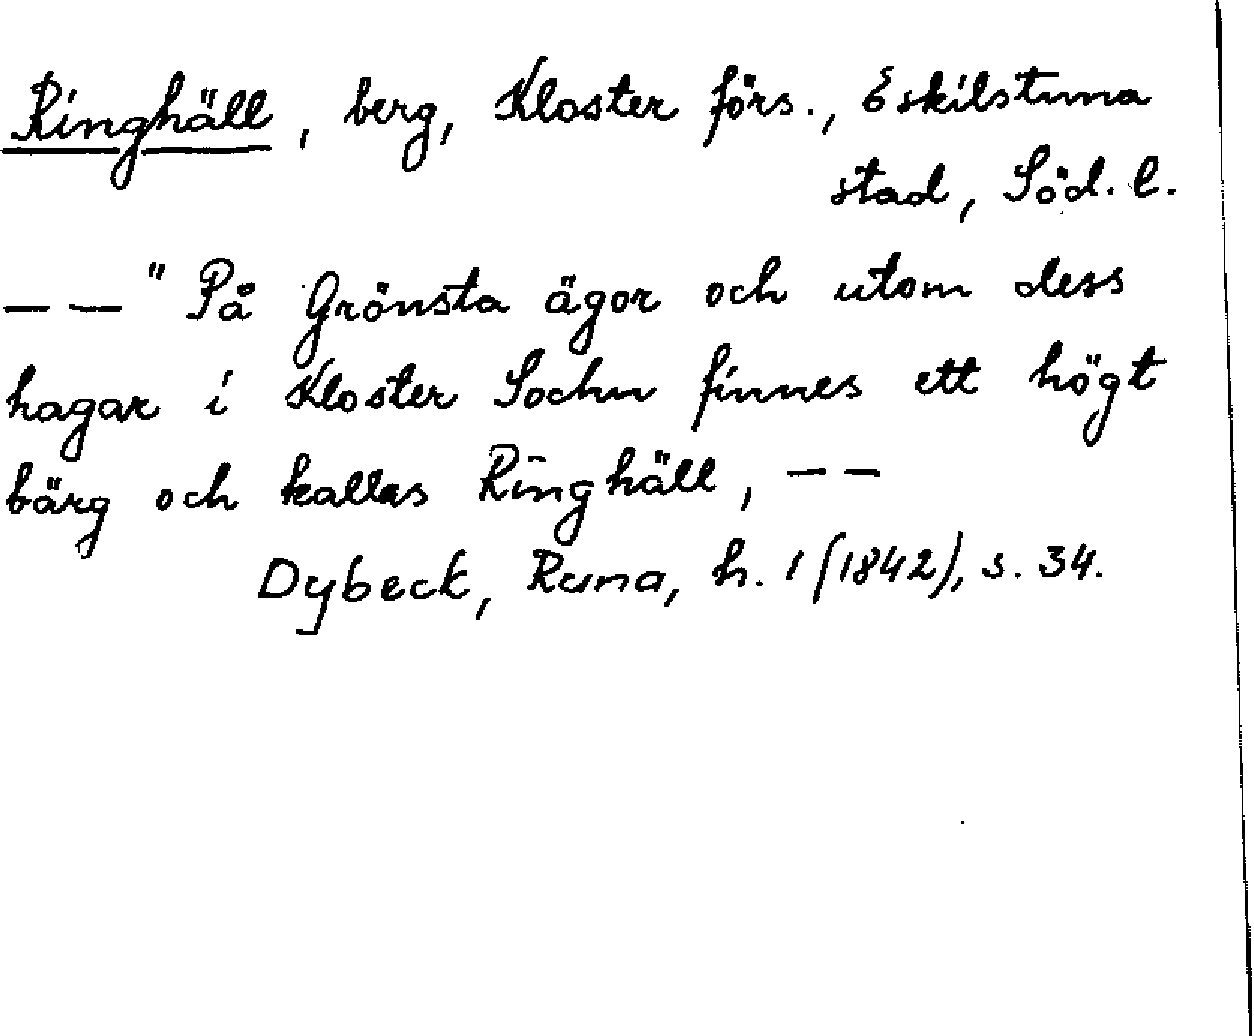 Ringhäll, berg, Kloster förs., Eskilstuna
stad, Söd. l.
— — " På Grönsta ägor och utom dess
hagar i Kloster Sochn finnes ett högt
bärg och kallas Ringhäll, — —
Dybeck, Runa, h. 1 (1842), s. 34.